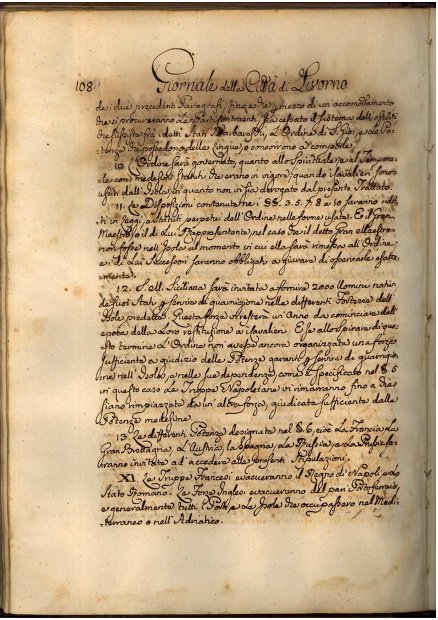 108 Giornale della Città di Livorno
de i due precedenti Paragrafi, fino a che, per mezzo di un accomodamento
che si procureranno Le Parti contraenti, sia cessato il sistema dell'ostilità
che sussiste fra i detti Stati Barbareschi, L'Ordine di S. Gio: e Le Po-
tenze che possedono delle cinque, o concorrono a comporle.
10. L'Ordine sarà governato, quanto allo Spirituale, e al Tempora-
le con i medesimi Statuti che erano in vigore, quando i Cavalieri sono
usciti dall'Isola, in quanto non vi sia derogato dal presente Trattato.
11. Le Disposizioni contenute ne i §§. 3. 5. 7. 8 e 10 saranno ridot-
ti in Leggi, e Statuti perpetui dell'Ordine nelle forme usate. E il Gran
Maestro, o il di Lui Rappresentante, nel caso che il detto Gran Maestro
non fosse nell'Isola al momento in cui ella sarà rimessa all'Ordine,
e i di Lui Successori saranno obbligati a giurare di osservarle esatta-
mente.
12. S. M. Siciliana sarà invitata a fornire 2000 Uomini nativi
de suoi Stati p. servire di guarnigione nelle differenti Fortezze dell'
Isole predette. Questa forza vi resterà un'Anno da cominciare dall'
epoca della Loro restituzione a i Cavalieri. E se allo spirare di que-
sto termine L'Ordine non avesse ancora organizzata una forza
sufficiente a giudizio delle Potenze garanti p. servire di guarnigio-
ne nell'Isola, e nelle sue dependenze, come è specificato nel §. 5
in questo caso Le Truppe Napoletane vi rimarranno fino a che
siano rimpiazzate da un'altra forza, giudicata sufficiente dalle
Potenze medesime.
13. Le differenti Potenze designate nel §. 6, cioè La Francia, La
Gran Brettagna, L'Austria, la Spagna, La Russia, e La Prussia sa-
ranno invitate ad accedere alle presenti Stipulazioni.
XI. Le Truppe Francesi evacueranno il Regno di Napoli, e Lo
Stato Romano. Le Forze Inglesi evacueranno del pari Portoferraio,
e generalmente tutti i Porti, e Le Isole che occupassero nel Medi-
terraneo o nell'Adriatico.